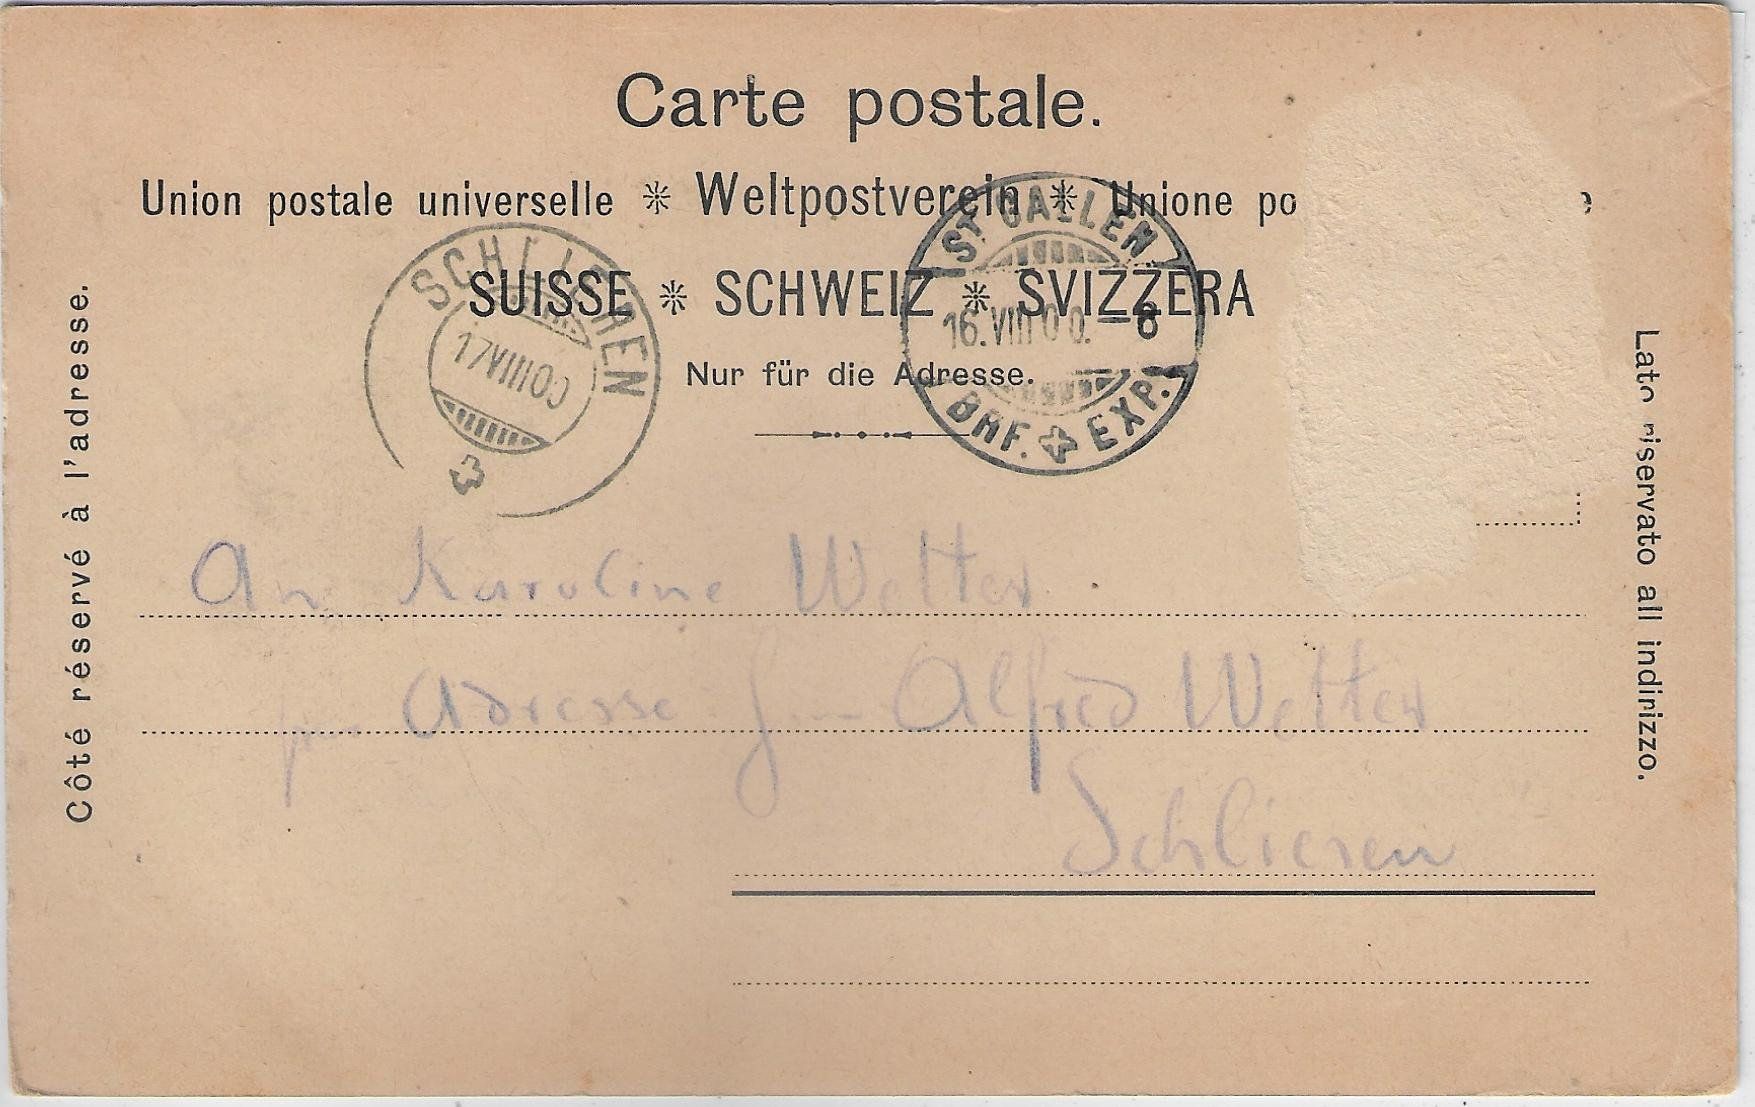 Carte postale.
Union postale universelle * Weltpostverein * Unione po e
SUISSE * SCHWEIZ * SVIZZERA
Nur für die Adresse.
SCHLIEREN
17 VIII 00
ST. GALLEN
16. VIII 00. – 6
BRF. EXP.
Côté réservé à l'adresse.
Lato riservato all indirizzo.
An Karoline Wetter
pr. Adresse Alfred Wetter
Schlieren